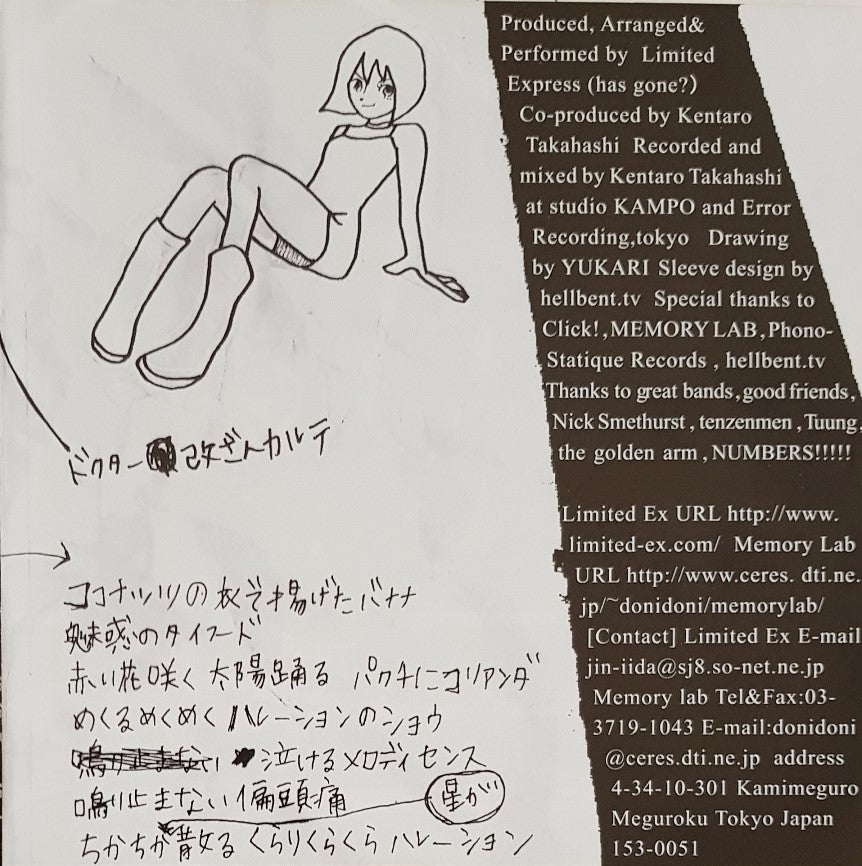 ドクター 改ざんカルテ
ココナッツの衣で揚げたバナナ
魅惑のタイフード
赤い花咲く 太陽踊る パクチにコリアンダ
めくるめくめく ハレーションのショウ
鳴り止まない 泣けるメロディセンス
鳴り止まない偏頭痛
星が
ちかちか散る くらりくらくら ハレーション
Produced, Arranged&
Performed by Limited
Express (has gone?)
Co-produced by Kentaro
Takahashi Recorded and
mixed by Kentaro Takahashi
at studio KAMPO and Error
Recording,tokyo Drawing
by YUKARI Sleeve design by
hellbent.tv Special thanks to
Click!,MEMORY LAB,Phono-
Statique Records , hellbent.tv
Thanks to great bands,good friends,
Nick Smethurst , tenzenmen ,Tuung,
the golden arm , NUMBERS!!!!!
Limited Ex URL http://www.
limited-ex.com/ Memory Lab
URL http://www.ceres. dti.ne.
jp/~donidoni/memorylab/
[Contact] Limited Ex E-mail
jin-iida@sj8.so-net.ne.jp
Memory lab Tel&Fax:03-
3719-1043 E-mail:donidoni
@ceres.dti.ne.jp address
4-34-10-301 Kamimeguro
Meguroku Tokyo Japan
153-0051